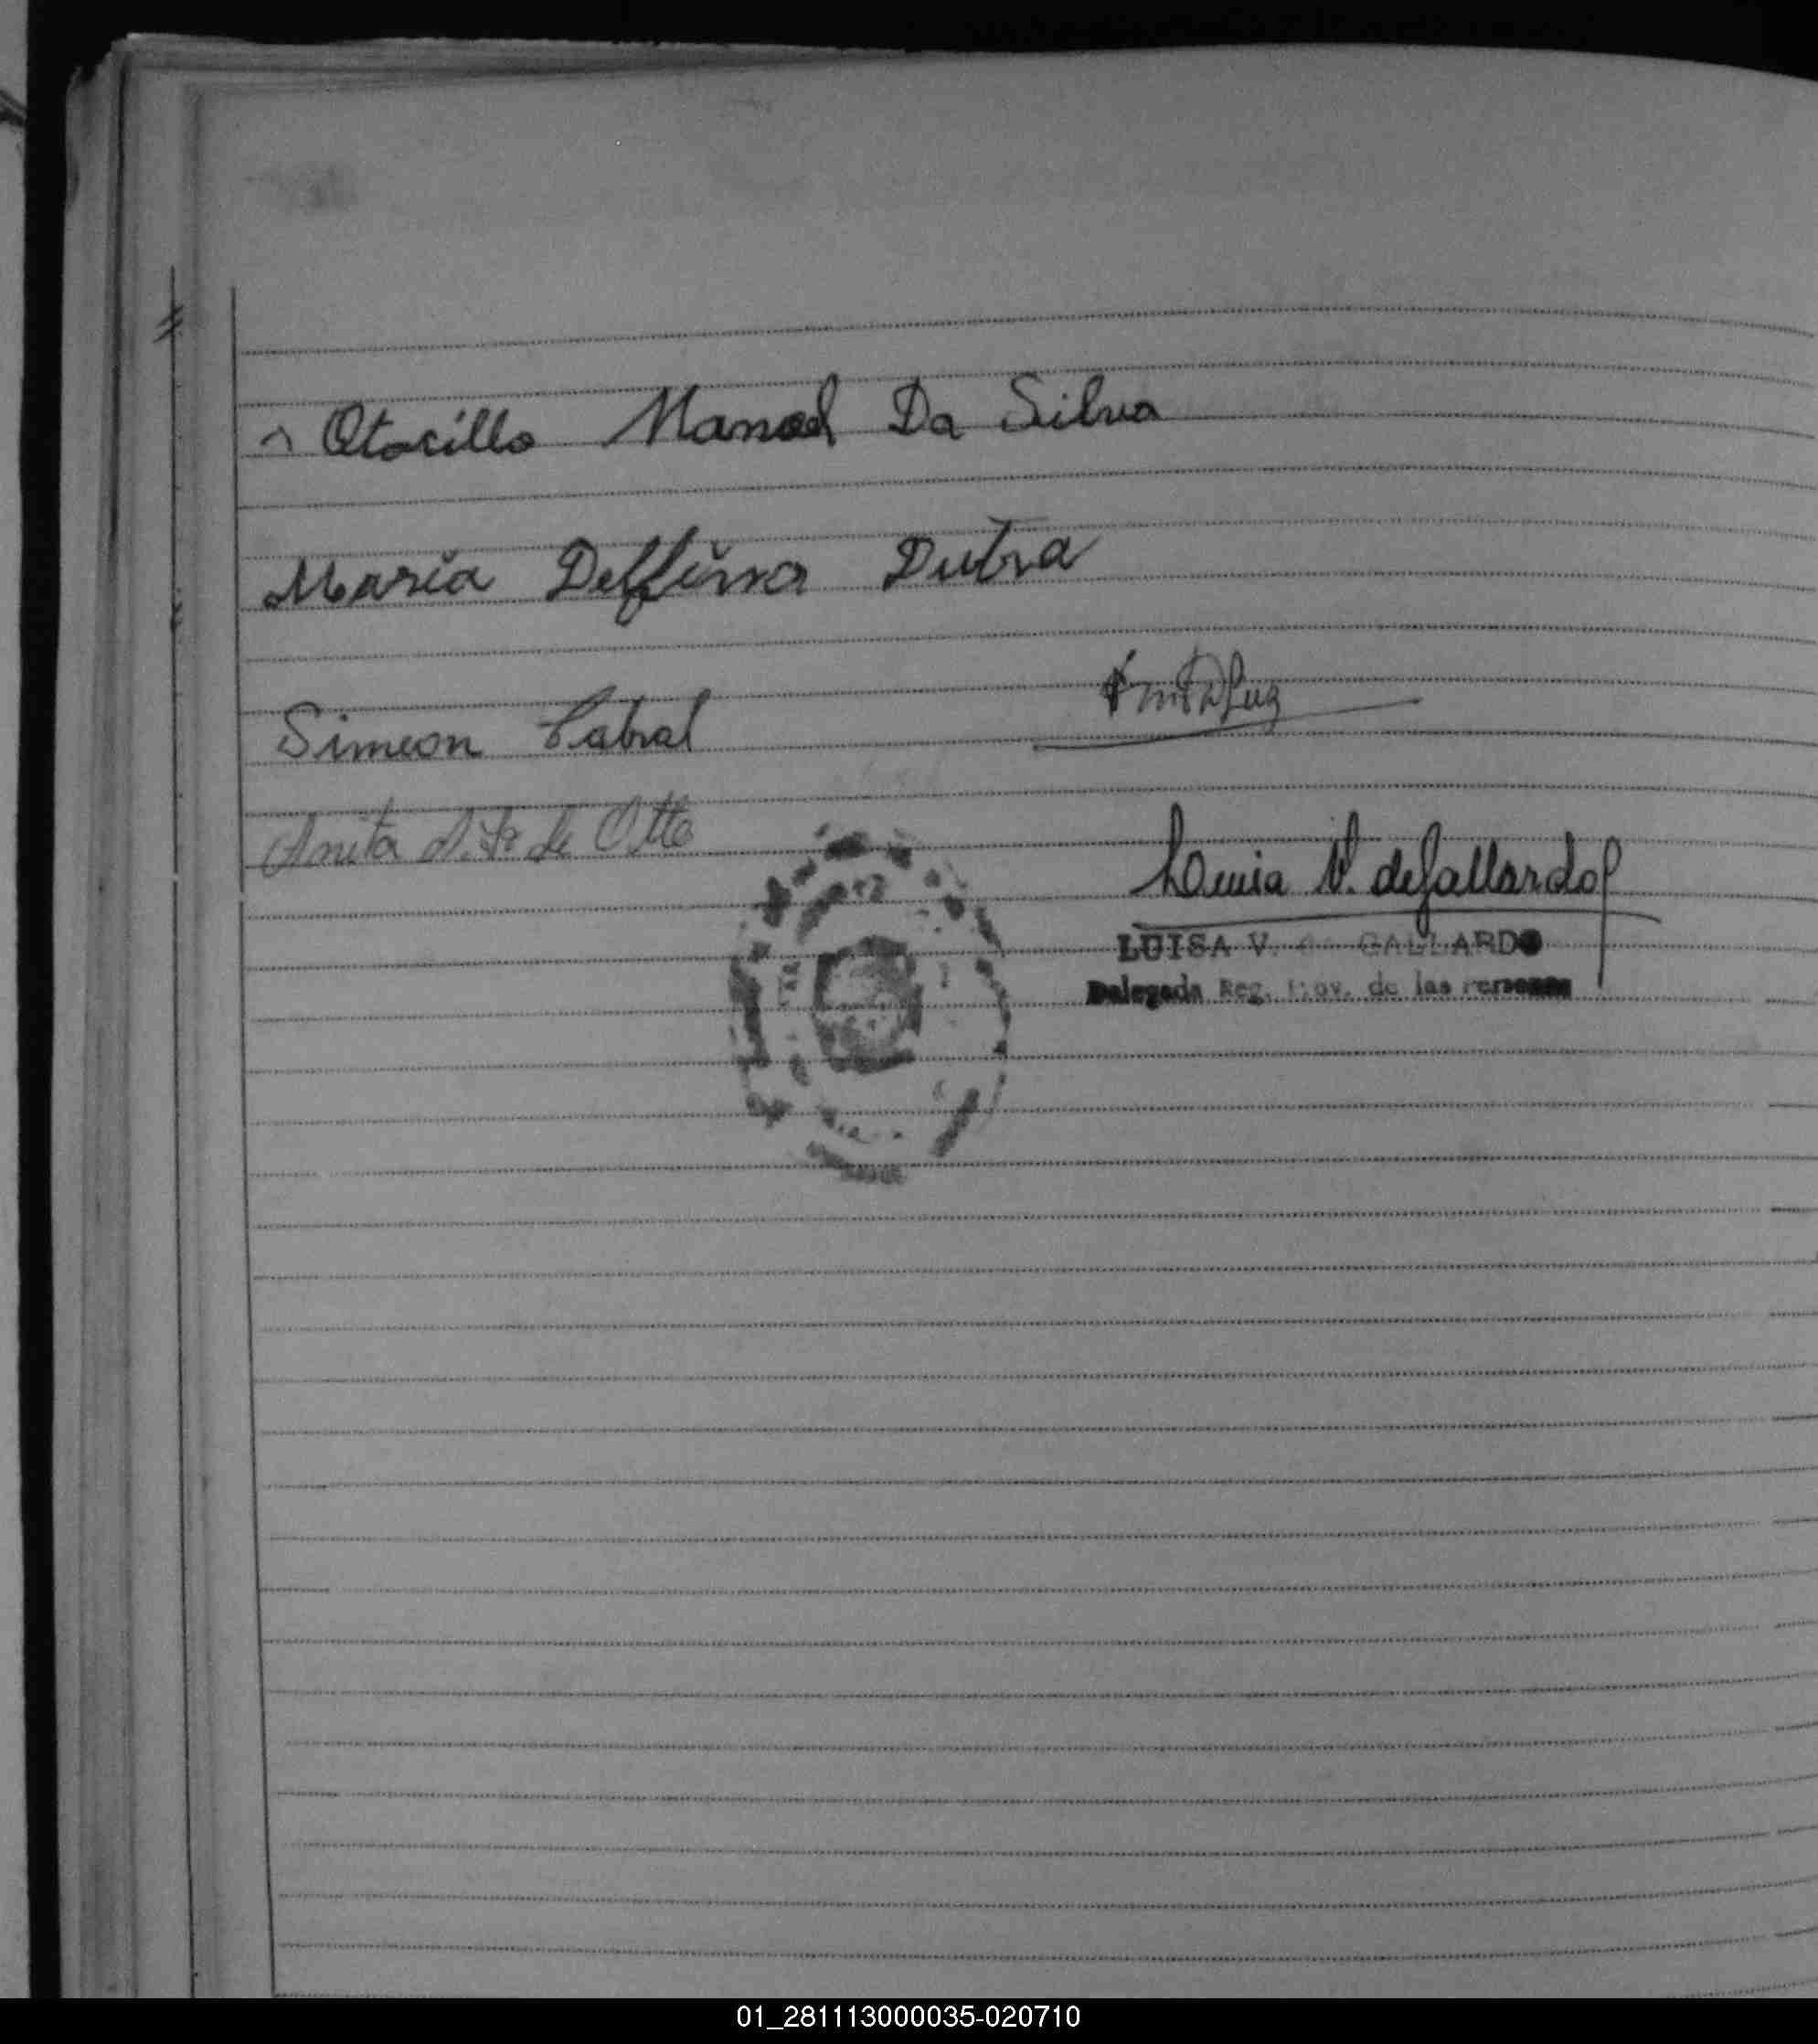 Otocillo Manoel Da Silva
Maria Delfina Dutra
Simeon Cabral
Anita de Otto
Luisa V. de Gallardo
LUISA V. de GALLARDO
Delegada Reg. Prov. de las Personas
01_281113000035-020710